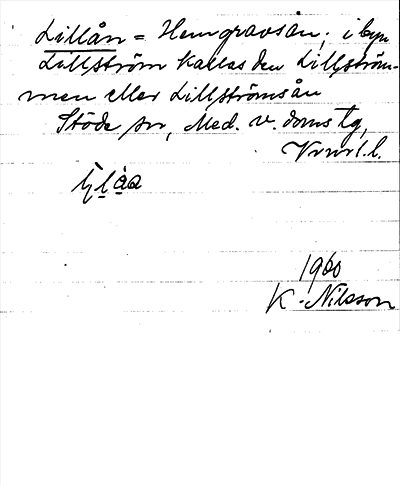 Lillån = Hemgravsån; i byn
Lillström kallas den Lillström-
men eller Lillströmsån
Stöde sn, Med. v. doms tg,
1960
K. Nilsson